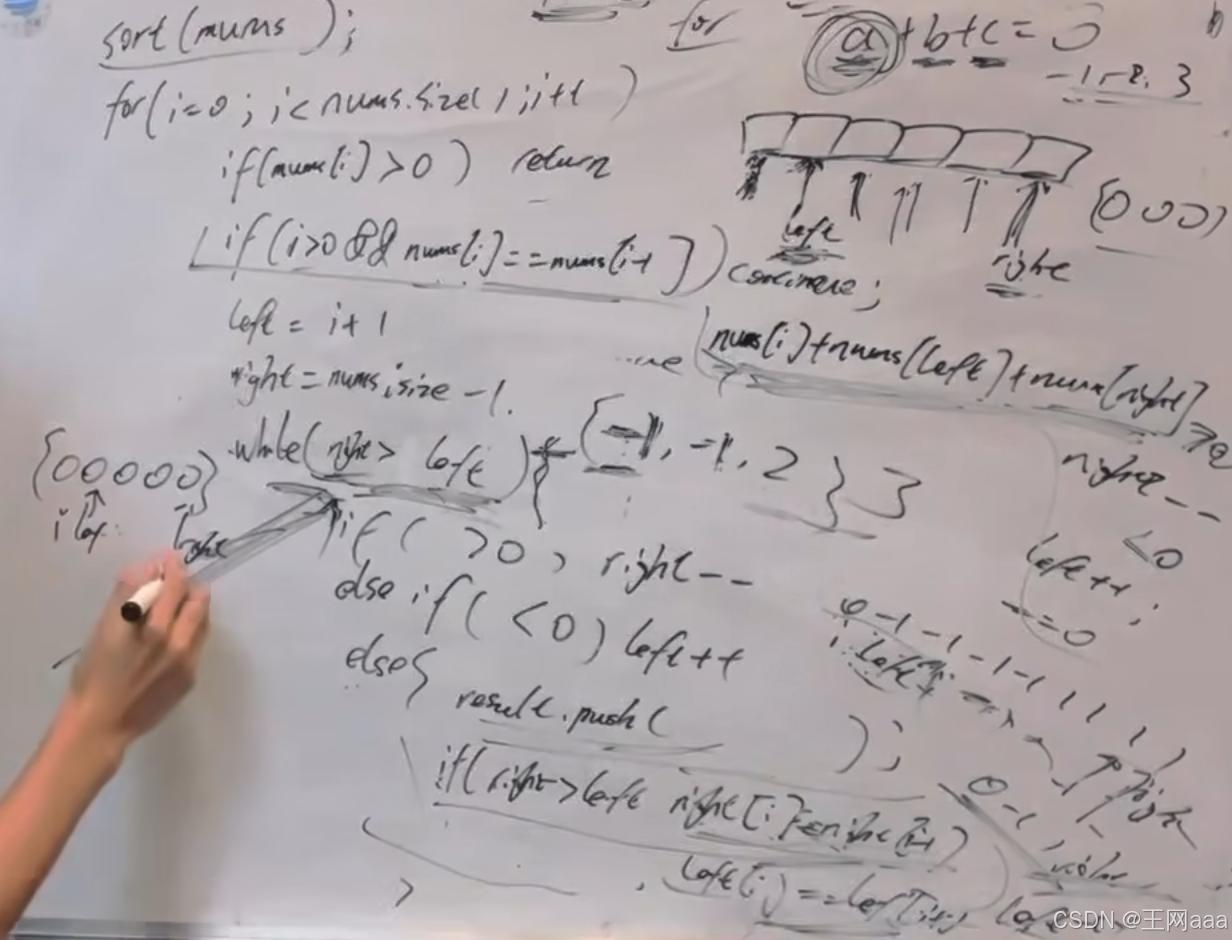 sort(nums );
for
a+b+c=0
-1,-2,3
for(i=0; i<nums.size( ; i++ )
if(nums[i]>0) return
{0 0 0}
if(i>0 && nums[i]==nums[i-1]) continue;
left
right
left = i+1
nums[i]+nums[left]+nums[right]>0
right=nums.size-1.
right--
while(right> left){
{-1, -1, 2}
{00000}
i left
right
<0
left++;
==0
if( >0) right--
else if( <0) left++
0 -1 -1 -1 -1 1 1 1 1
i left
right
else{
result.push( );
if(right>left right[i]==right[i-1)
0 -1 1
left[i]==left[i+1
left
CSDN @王网aaa